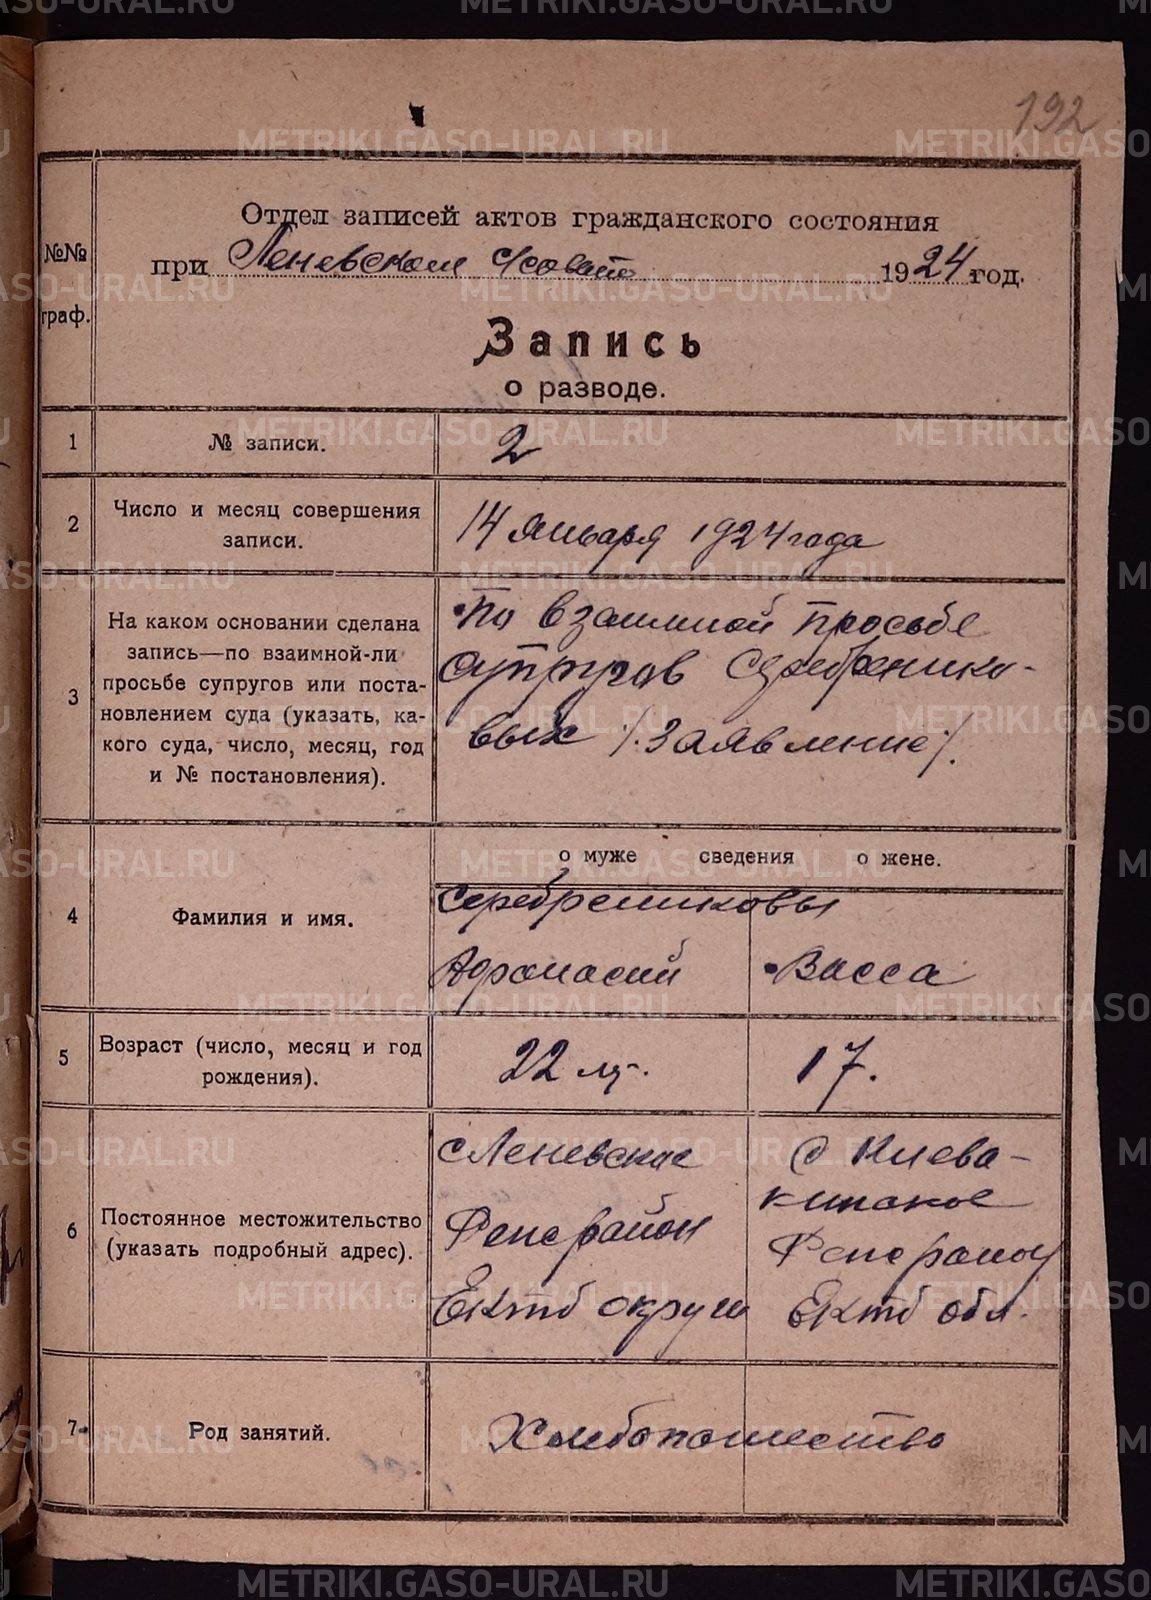 192
№№
граф.
Отдел записей актов гражданского состояния
при Леневском с/совете 1924 год.
Запись
о разводе.
1
№ записи.
2
2
Число и месяц совершения
записи.
14 января 1924 года
3
На каком основании сделана
запись—по взаимной-ли
просьбе супругов или поста-
новлением суда (указать, ка-
кого суда, число, месяц, год
и № постановления).
По взаимной просьбе
супругов Серебренико-
вых /. Заявление /.
о муже сведения о жене.
4
Фамилия и имя.
Серебрениковы
Афонасий
Васса
5
Возраст (число, месяц и год
рождения).
22 л.
17.
6
Постоянное местожительство
(указать подробный адрес).
с Леневское
Реж район
Охтб округа
д Клева-
кинское
Реж район
Ектб обл.
7
Род занятий.
Хлебопашество
METRIKI.GASO-URAL.RU